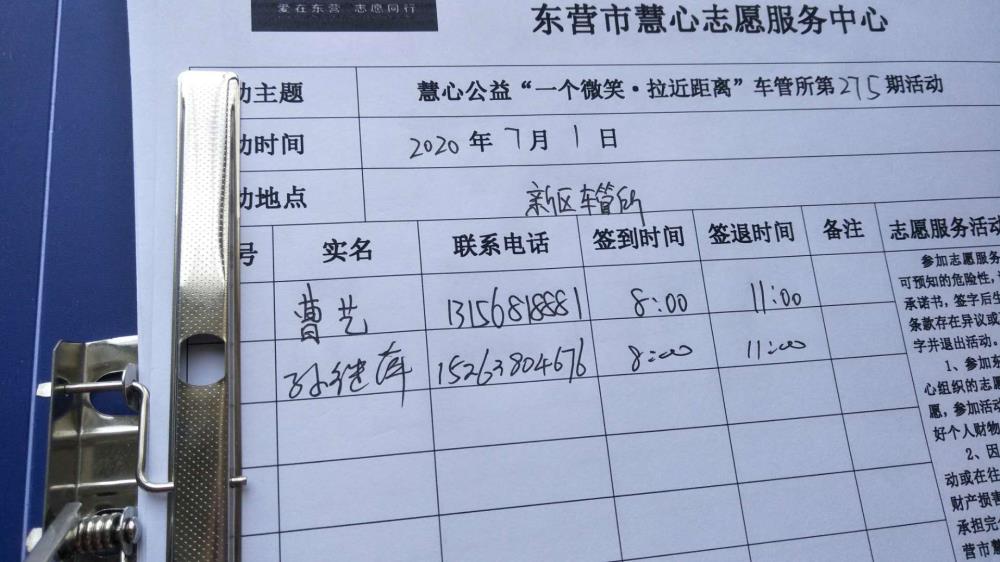 爱在东营 志愿同行
东营市慧心志愿服务中心
动主题 慧心公益“一个微笑·拉近距离”车管所第275期活动
动时间 2020年7月1日
动地点 新区车管所
号 实名 联系电话 签到时间 签退时间 备注 志愿服务活动
曹艺 13156818881 8:00 11:00
孙继萍 15263804676 8:00 11:00
参加志愿服务
可预知的危险性,
承诺书,签字后生
条款存在异议或
字并退出活动。
1、参加东
心组织的志愿
愿,参加活动
好个人财物
2、因
动或在往
财产损害
承担完
营市慧